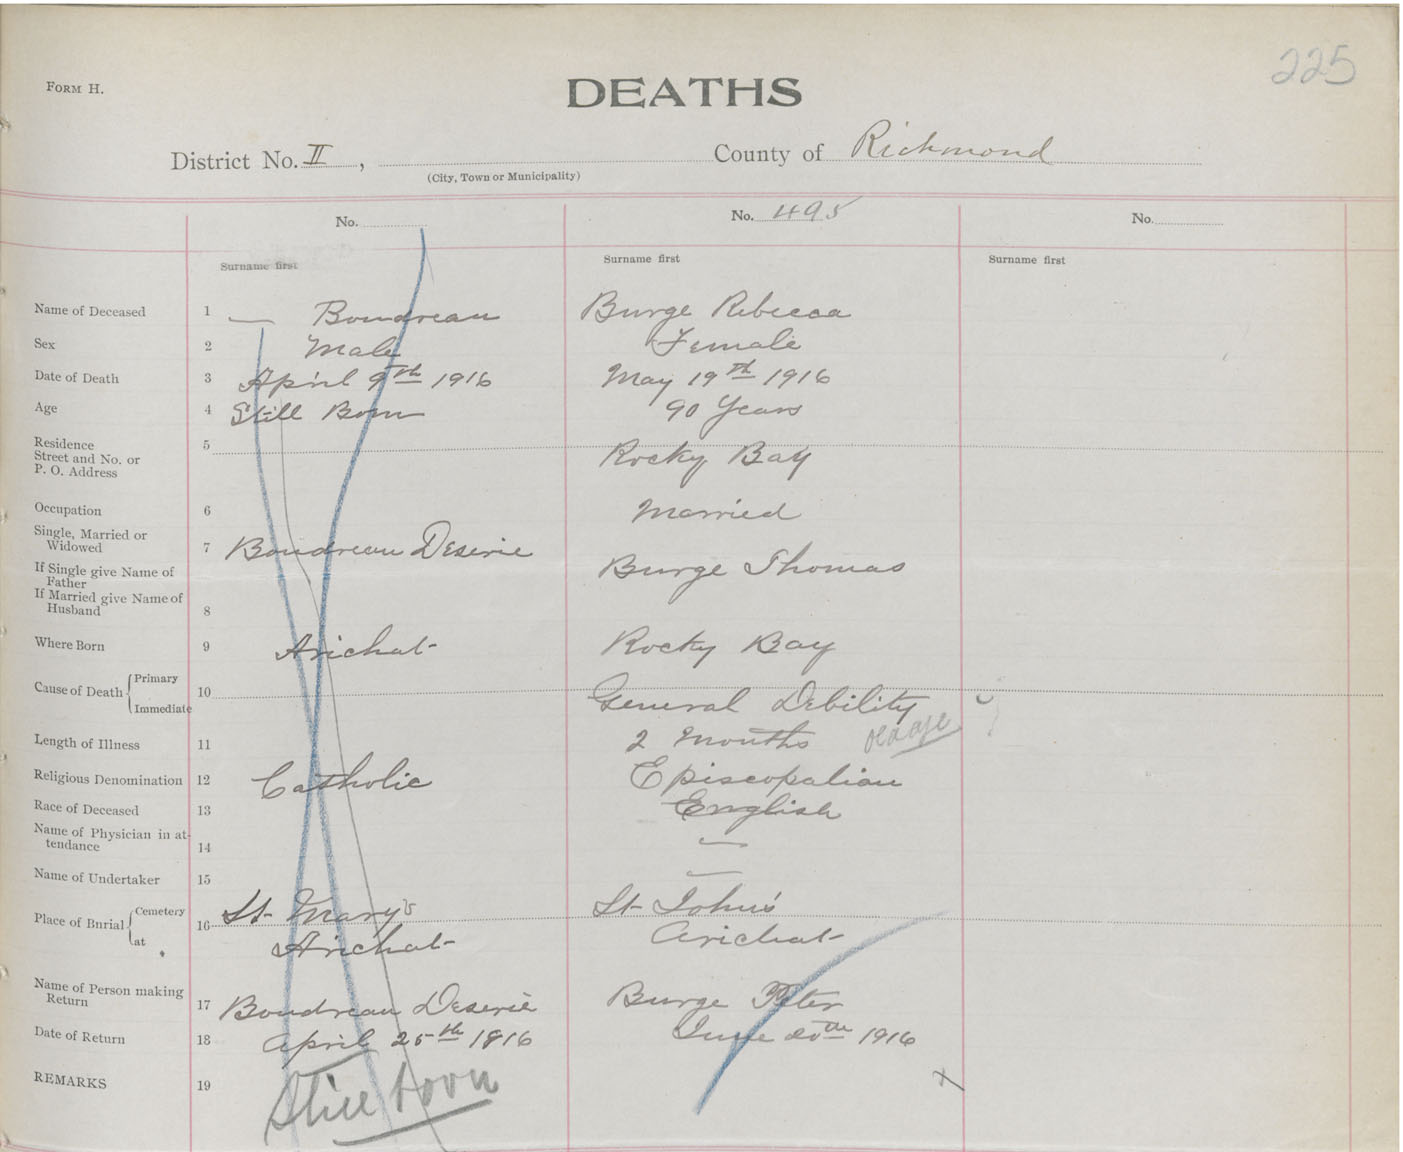 225
FORM H.
DEATHS
District No. II , County of Richmond
(City, Town or Municipality)
No. No. 495 No.
Surname first Surname first Surname first
Name of Deceased 1 — Boudreau Burge Rebecca
Sex 2 Male Female
Date of Death 3 April 9th 1916 May 19th 1916
Age 4 Still Born 90 Years
Residence 5
Street and No. or Rocky Bay
P. O. Address
Occupation 6 Married
Single, Married or
Widowed 7 Boudreau Deserie
If Single give Name of Burge Thomas
Father
If Married give Name of
Husband 8
Where Born 9 Arichat Rocky Bay
Cause of Death { Primary
10 General Debility
Immediate
Length of Illness 11 2 Months old age
Religious Denomination 12 Catholic Episcopalian
Race of Deceased 13 English
Name of Physician in at-
tendance 14 —
Name of Undertaker 15 —
Place of Burial { Cemetery St. Mary's St. John's
16
at Arichat Arichat
Name of Person making
Return 17 Boudreau Deserie Burge Peter
Date of Return 18 April 25th 1916 June 20th 1916
REMARKS 19 Still born x